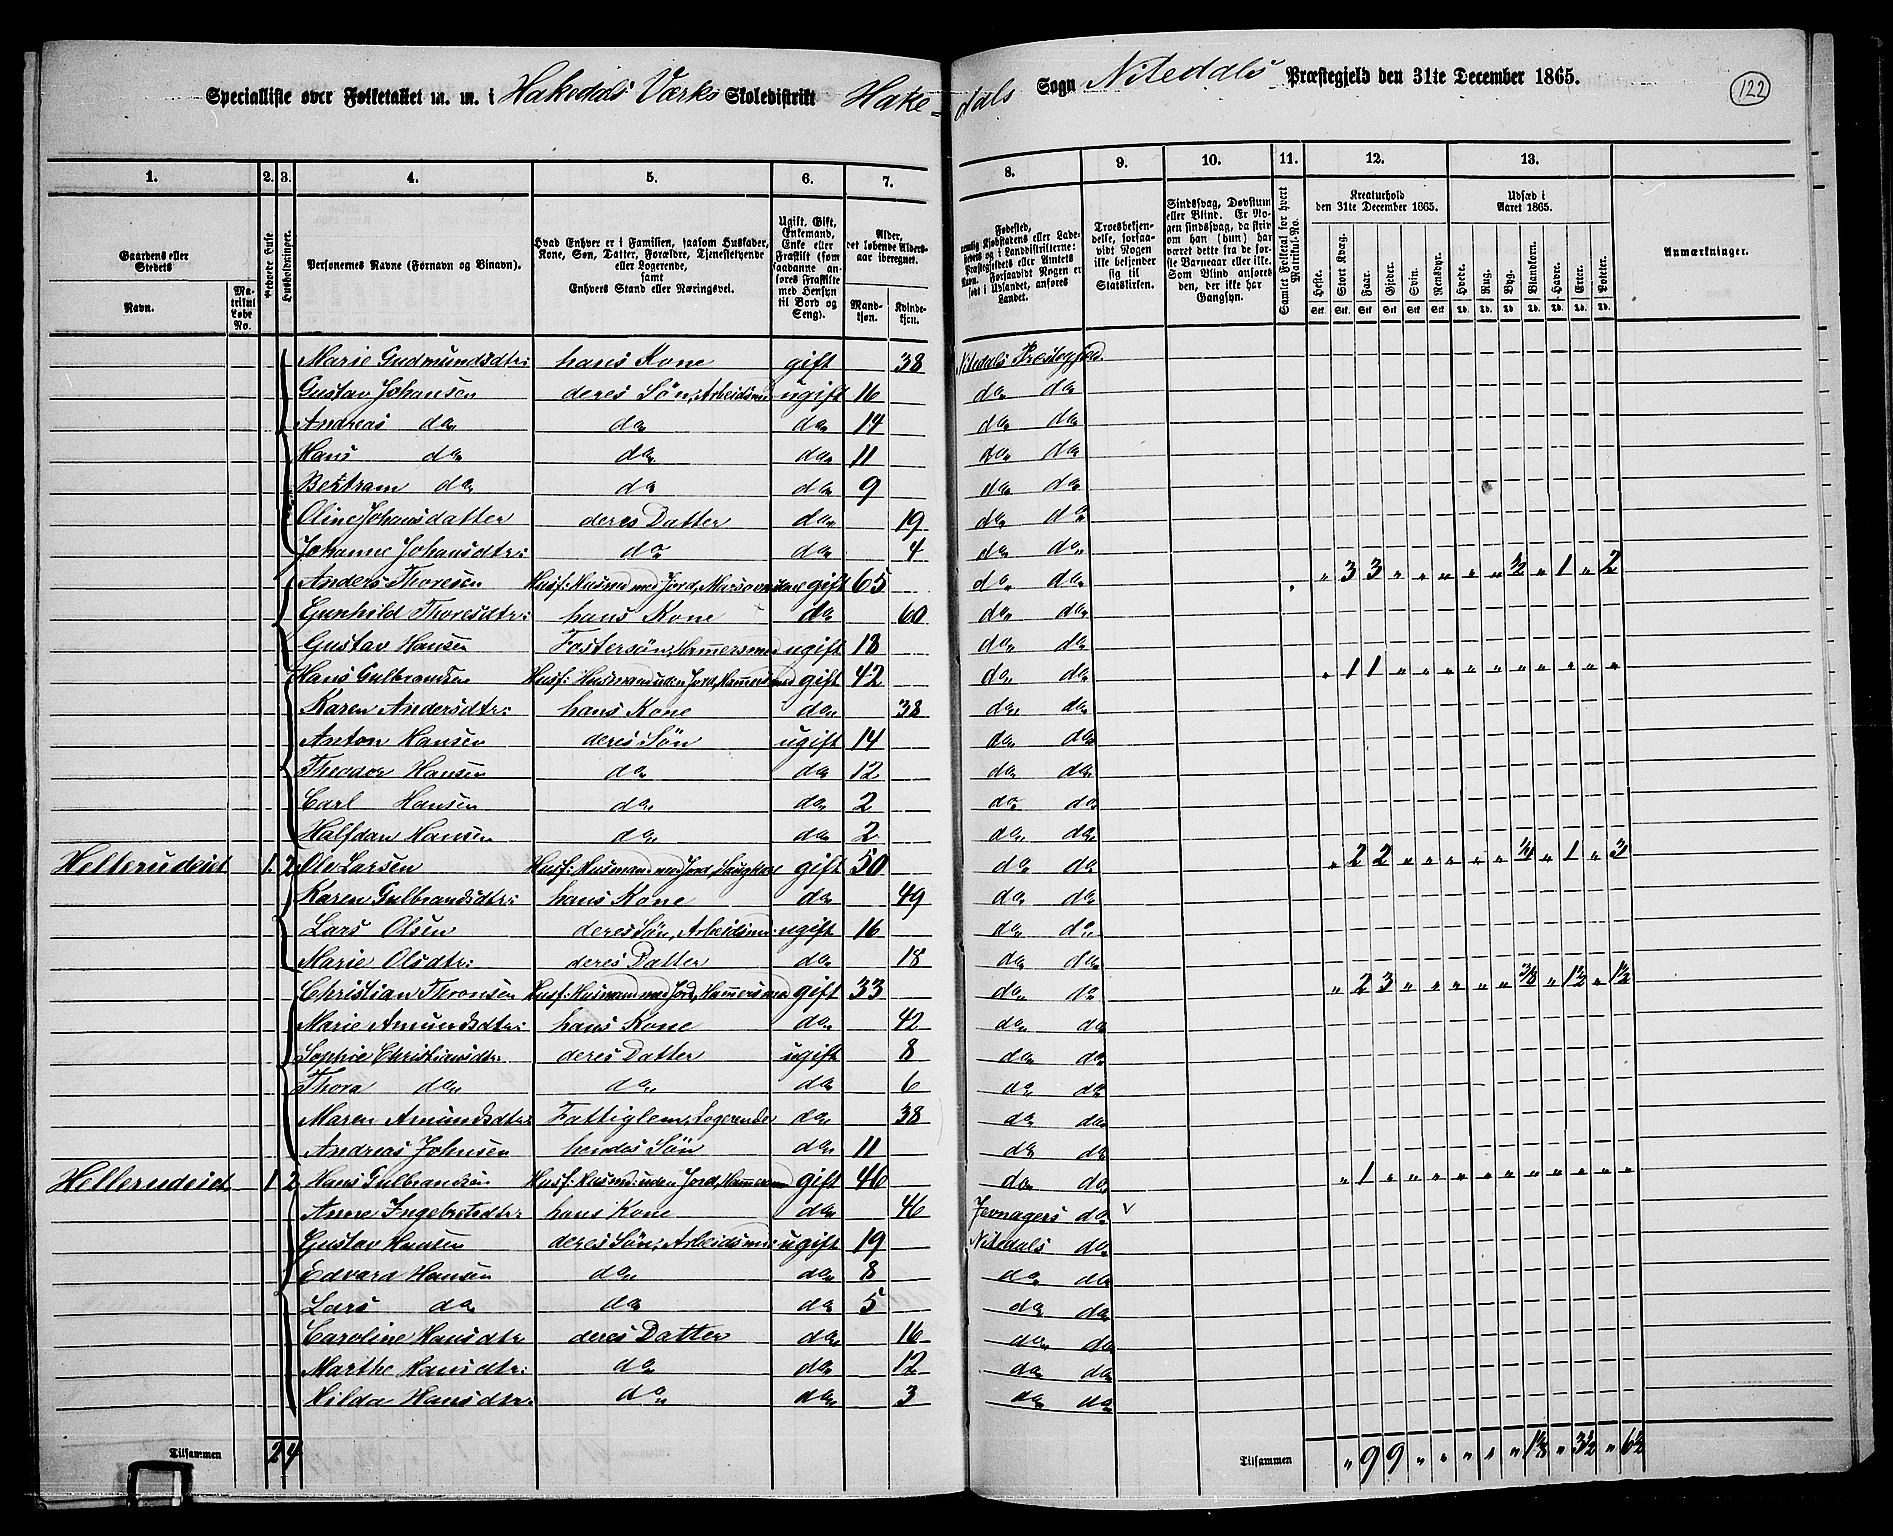 Specialliste over Folketallet m. m. i Hakedals Værks Skoledistrikt Hake=
dals Sogn Nitedals Præstegjeld den 31te December 1865.
122
1. 2. 3. 4. 5. 6. 7. 8. 9. 10. 11. 12. 13.
Gaardens eller Stedets
Navn.
Matrikul Løbe No.
Beboede Huse
Husholdninger.
Personernes Navne (Fornavn og Binavn).
Hvad Enhver er i Familien, saasom Husfader, Kone, Søn, Datter, Forældre, Tjenestetyende eller Logerende, samt Enhvers Stand eller Næringsvei.
Ugift, Gift, Enkemand, Enke eller Fraskilt (som saadanne anføres Fraskilte med Hensyn til Bord og Seng).
Alder, det løbende Aldersaar iberegnet.
Mandkjøn.
Kvindekjøn.
Troesbekjendelse, forsaavidt Nogen ikke bekjender sig til Statskirken.
Sindssvag, Døvstum eller Blind. Er Nogen sindssvag, da skrives om han (hun) har været dette fra de første Barneaar eller ikke. Som Blind anføres den, der ikke har Gangsyn.
Samlet Folketal for hvert Matrikul-No.
Kreaturhold den 31te December 1865.
Heste. Stort Kvæg. Faar. Gjeder. Svin. Rensdyr.
Udsæd i Aaret 1865.
Hvede. Rug. Byg. Blandkorn. Havre. Erter. Poteter.
Anmærkninger.
Marie Gudmundsdtr: hans Kone gift 38 Nitedals Præstegjeld
Gustav Johansen deres Søn, Arbeidsmd ugift 16 do do
Andreas do do do 14 do do
Hans do do do 11 do do
Bertram do do do 9 do do
Oline Johansdatter deres Datter do 19 do do
Johanne Johansdtr: do do 4 do do
Anders Thoresen Husf: Husmand med Jord, gift 65 do do " 3 3 " " " " " " 1 " 2
Gunhild Thoresdtr: hans Kone do 60 do do
Gustav Hansen Fostersøn, Hammersmed ugift 18 do do
Hans Gulbrandsen Husf: Husmand uden Jord, Hammersmed gift 42 do do " 1 1 " " " " " " " " " "
Karen Andersdtr: hans Kone do 38 do do
Anton Hansen deres Søn ugift 14 do do
Theodor Hansen do do 12 do do
Carl Hansen do do 2 do do
Halfdan Hansen do do 2 do do
Hellerudeiet 1 2 Ole Larsen Husf: Husmand med Jord, gift 50 do do " 2 2 " " " " " " 1 " 3
Karen Gulbrandsdtr: hans Kone do 49 do do
Lars Olsen deres Søn, Arbeidsmd ugift 16 do do
Marie Olsdtr: deres Datter do 18 do do
Christian Thronsen Husf: Husmand med Jord, Hammersmed gift 33 do do " 2 3 " " " " " 3/8 " 1½ " 1½
Marie Amundsdtr: hans Kone do 42 do do
Sophie Christiansdtr deres Datter ugift 8 do do
Thora do do do 6 do do
Maren Amundsdtr: Fattiglem, Logerende do 38 do do
Andreas Johnsen hendes Søn do 11 do do
Hellerudeiet 1 2 Hans Gulbrandsen Husf: Husmd: uden Jord, Hammersmd gift 46 do do " 1 " " " " " " " " " " "
Anne Ingebretsdtr hans Kone do 46 Jevnagers do v
Gustav Hansen deres Søn, Arbeidsmd ugift 19 Nitedals do
Edvard Hansen do do 8 do do
Lars do do do 5 do do
Caroline Hansdtr deres Datter do 16 do do
Marthe Hansdtr: do do 12 do do
Hilda Hansdtr: do do 3 do do
Tilsammen 2 4 Tilsammen " 9 9 " " " " " " 3½ " 6½